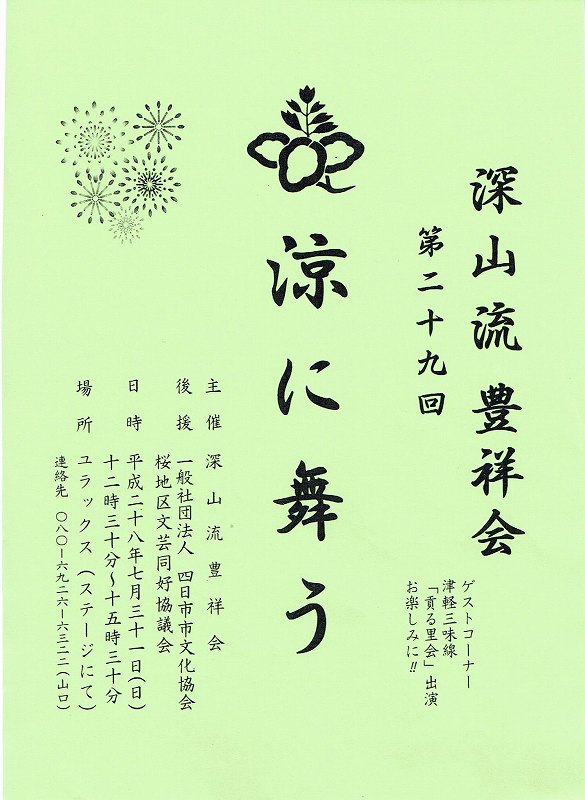 深山流 豊祥会
第二十九回
ゲストコーナー
津軽三味線
「貢る里会」出演
お楽しみに!!
涼に舞う
主催 深山流豊祥会
後援 一般社団法人 四日市市文化協会
桜地区文芸同好協議会
日時 平成二十八年七月三十一日(日)
十二時三十分~十五時三十分
場所 ユラックス(ステージにて)
連絡先 〇八〇ー六九二六ー六三二二(山口)